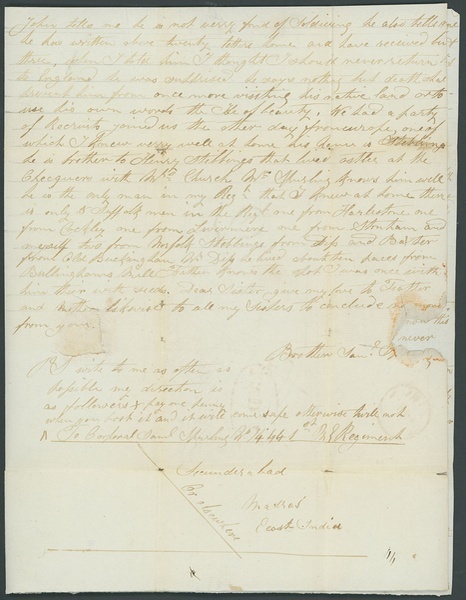 John tells me he is not verry fond of Soldiering he also tells me
he has written above twenty letters home and have received but
three, when I told him I thought I should never return
to England he was he says nothing but death shall
prevent him from once more visiting his native land or to
use his own words the Isle of beauty. We had a party
of Recruits joined us the other day from europe, one of
which I knew verry well at home his name is Stebbings
he is brother to Henry Stebbings that lived ostler at the
Chequers with Mrs Church Mr Sparling knows him well
he is the only man in my Regt that I knew at home there
is only 5 Suffolk men in the Regt one from Harleston one
from Cockley one from one from Stonham and
myself two from Norfolk Stebbings from Diss and Barber
from Old Buckingham Nr Diss he lived about ten paces from
Buckinghams Hall Father knows the spot I was once with
him there with seeds. Dear Sister, give my love to Father
and Mother likewise to all my Sisters to conclude
from your
from this
never
Brother Saml
PS write to me as often as
possible my direction is
as follows & pay one penny
when you post it and it will come safe otherwise it will not
To Corporal Saml Sparling No 1446 1st Regiment
Secunderabad
Or elsewhere
Madras
East India